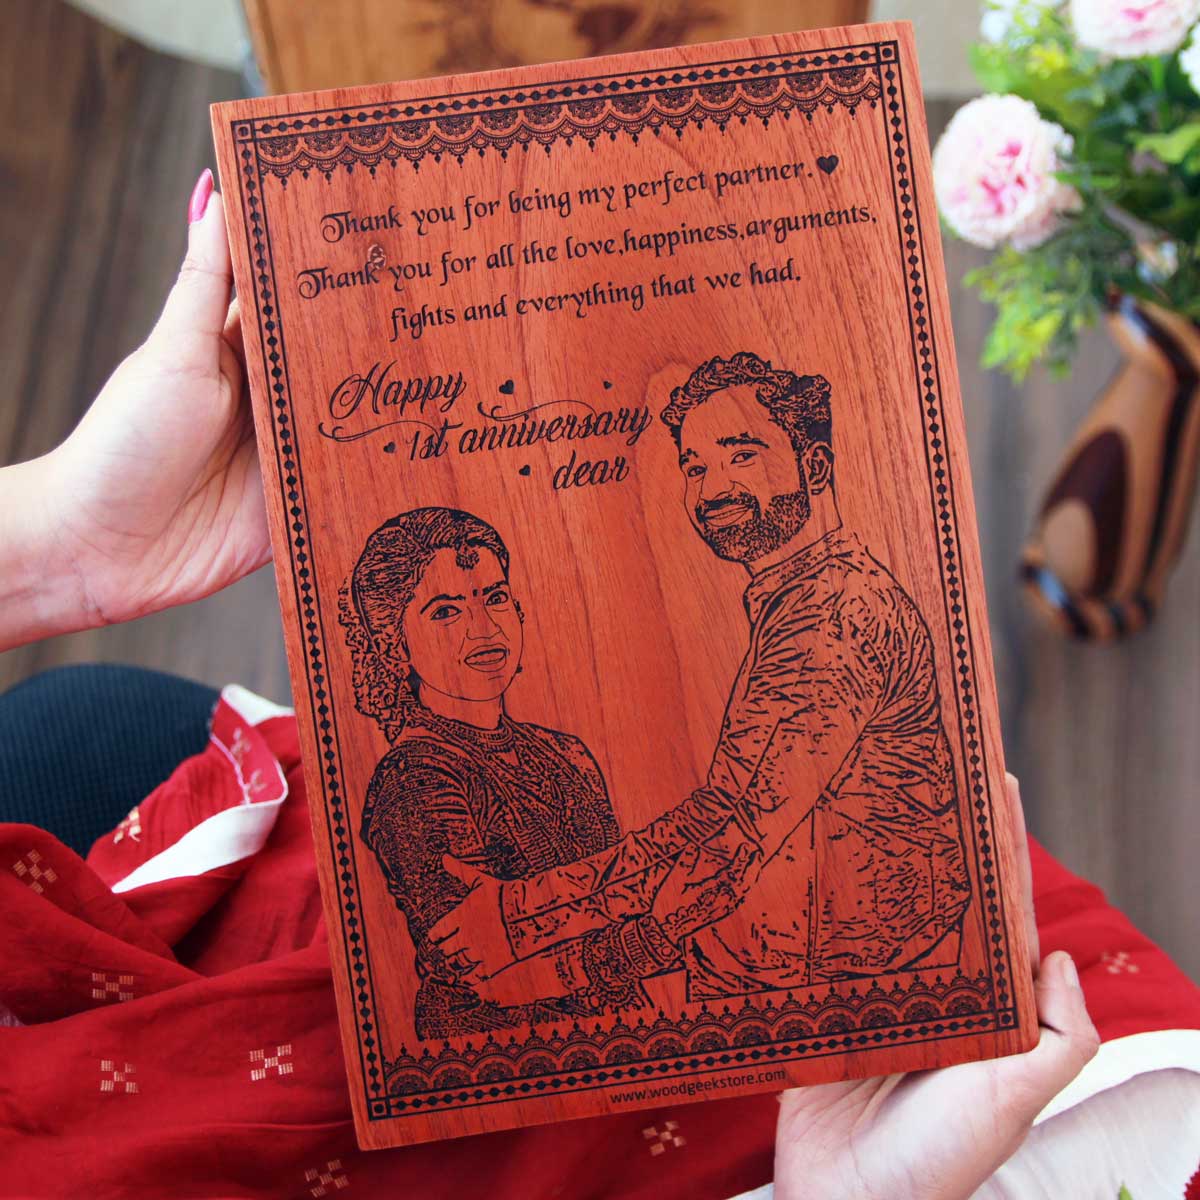 Thank you for being my perfect partner.
Thank you for all the love,happiness,arguments,
fights and everything that we had.
Happy
1st anniversary
dear
www.woodgeekstore.com